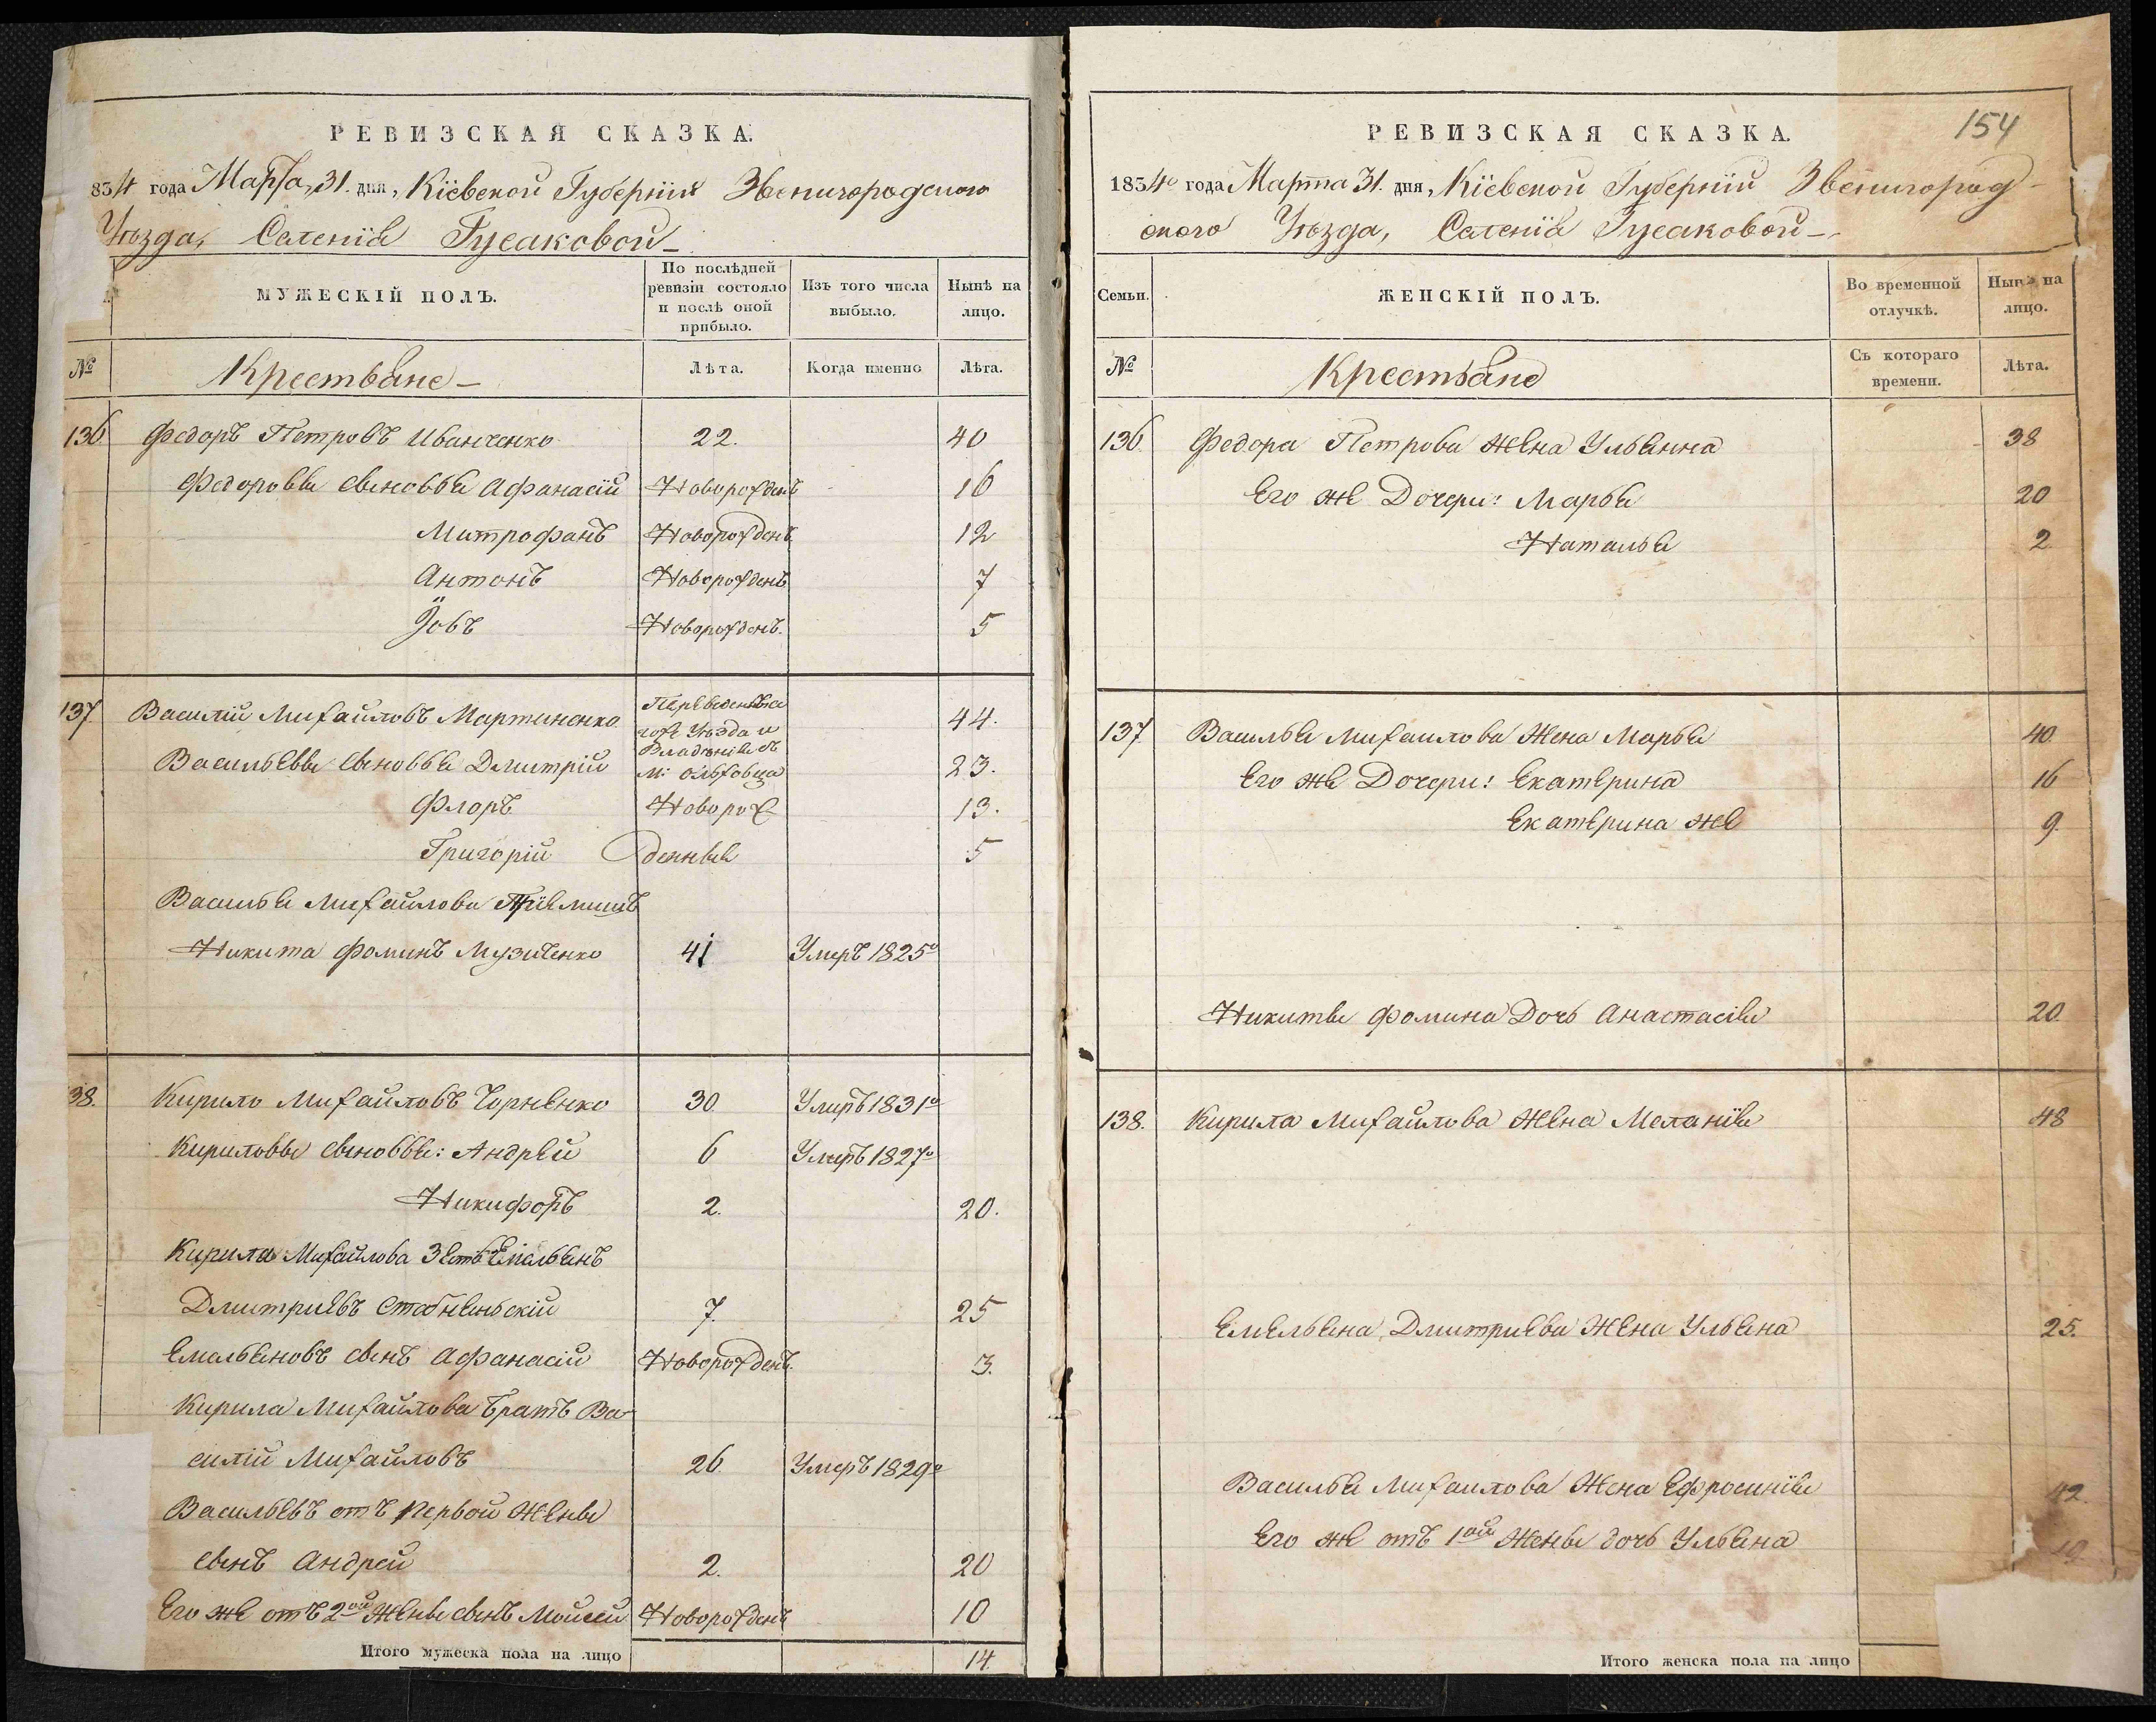 РЕВИЗСКАЯ СКАЗКА.
834 года Марта, 31. дня, Кіевской Губерніи Звенигородского
Уѣзда, Селенія Гусаковой
МУЖЕСКІЙ ПОЛЪ.
По послѣдней ревизіи состояло и послѣ оной прибыло.
Изъ того числа выбыло.
Нынѣ на лицо.
№
Крестьяне
Лѣта.
Когда именно
Лѣта.
136 Федоръ Петровъ Иванченко 22. 40
Федоровы сыновья Афанасій Новорожденъ 16
Митрофанъ Новорожденъ 12
Антонъ Новорожденъ 7
Іовъ Новорожденъ. 5
137 Василій Михайловъ Мартиненко Переведенные 44.
тогоже Уѣзда и
Владѣнія съ
Васильевы сыновья Дмитрій м: Ольховца 23.
Флоръ Новорож 13.
Григорій денные 5
Василья Михайлова Пріемишъ
Никита Фоминъ Музиченко 41 Умеръ 1825о
38. Кирило Михайловъ Чорненко 30 Умеръ 1831о
Кириловы сыновья: Андрей 6 Умеръ 1827о
Никифоръ 2. 20.
Кирила Михайлова Зять Емельянъ
Дмитріевъ Стебненьскій 7. 25
Емельяновъ сынъ Афанасій Новорожденъ. 3.
Кирила Михайлова братъ Ва
силій Михайловъ 26. Умеръ 1829о
Васильевъ отъ первой жены
сынъ Андрей 2. 20
Его же отъ 2ой жены сынъ Мойсей Новорожденъ 10
Итого мужеска пола на лицо 14.
154
РЕВИЗСКАЯ СКАЗКА.
1834о года Марта 31. дня, Кіевской Губерніи Звенигород
ского Уѣзда, Селенія Гусаковой
Семьи.
ЖЕНСКІЙ ПОЛЪ.
Во временной отлучкѣ.
Нынѣ на лицо.
№
Крестьяне
Съ котораго времени.
Лѣта.
136. Федора Петрова жена Ульянна 38
Его же Дочери: Марья 20
Наталья 2.
137 Василья Михайлова Жена Марья 40.
Его же Дочери: Екатерина 16
Екатерина же 9.
Никиты Фомина Дочь Анастасія 20.
138. Кирила Михайлова жена Меланія 48
Емельяна Дмитріева жена Ульяна 25.
Василья Михайлова Жена Ефросинія 42.
Его же отъ 1ой Жены дочь Ульяна 19.
Итого женска пола на лицо